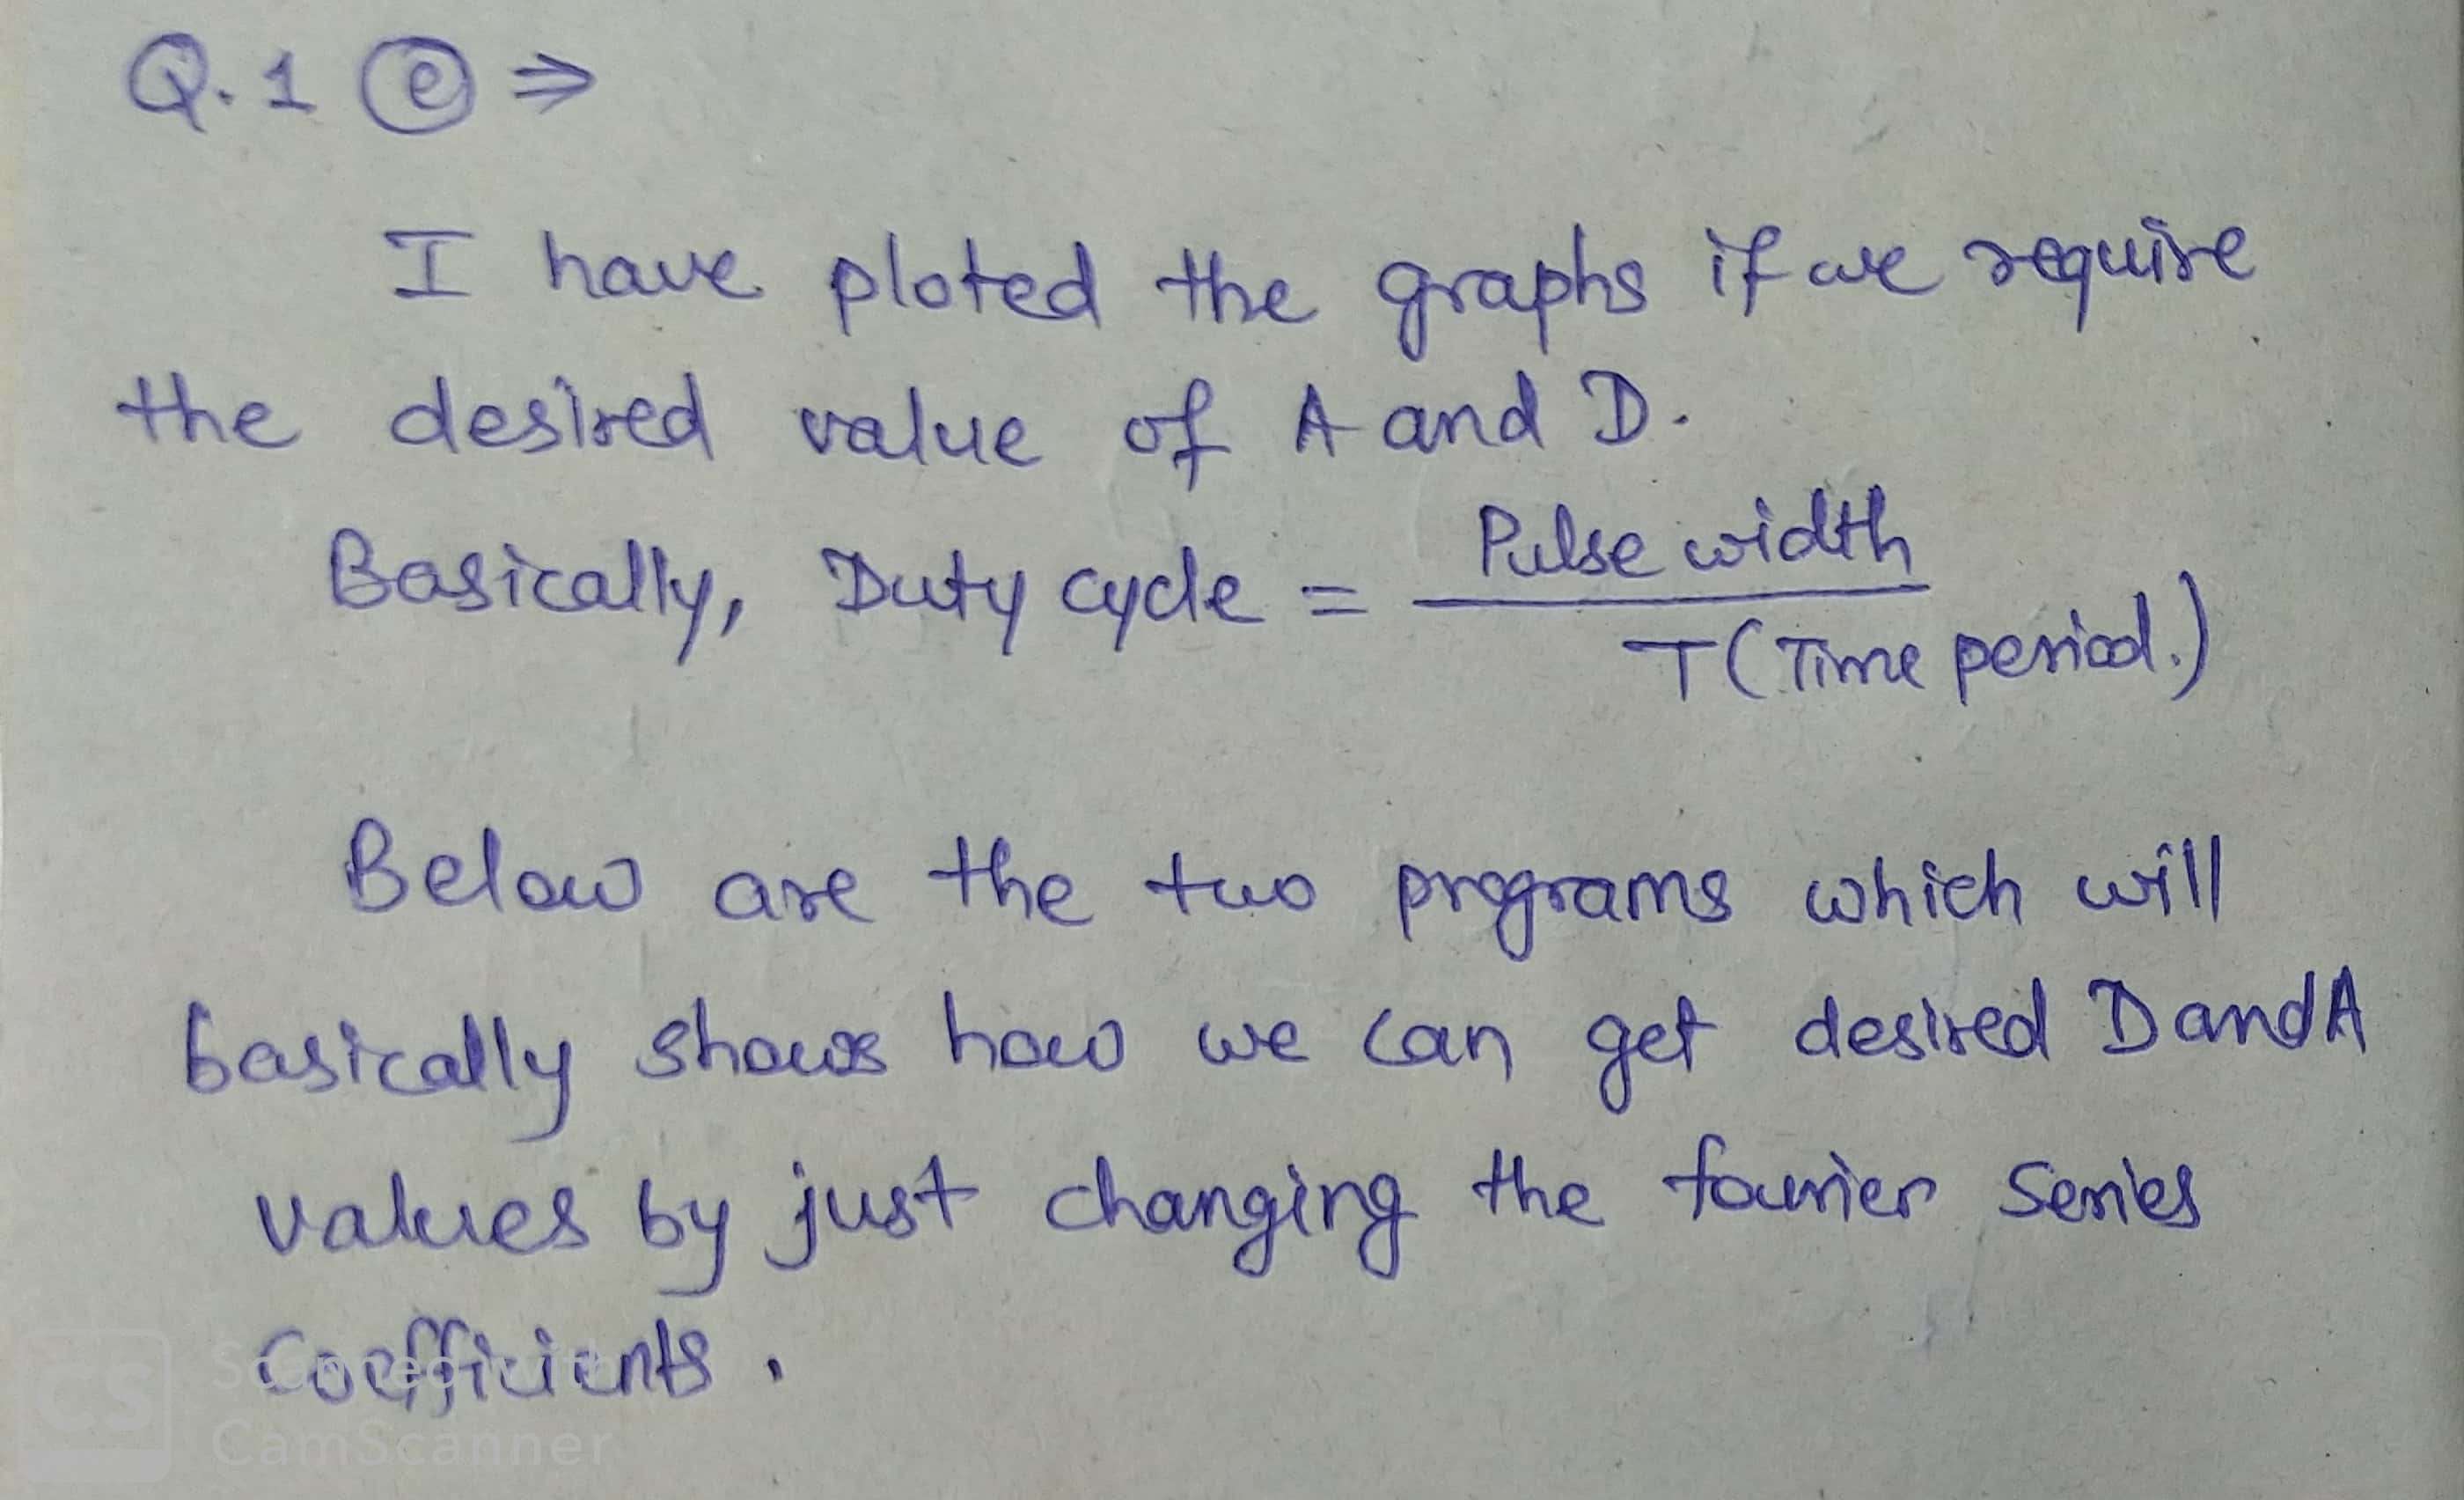 Q.1 (e) ⇒
I have ploted the graphs if we require
the desired value of A and D.
Basically, Duty cycle = Pulse width
T (Time period.)
Below are the two programs which will
basically shows how we can get desired D and A
values by just changing the fourier series
coefficients.
CS
Scanned with
CamScanner